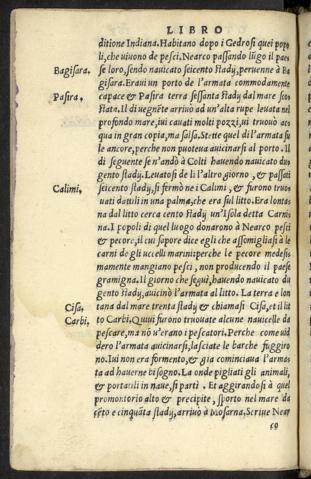 LIBRO
ditione Indiana. Habitano dopo i Gedrosi quei popo
li, che viuono de pesci. Nearco passando lũgo il pae
Bagisara. se loro, sendo nauicato seicento stadij, peruenne à Ba
gisara. Eraui un porto de l'armata commodamente
Pasira. capace & Pasira terra sessanta stadij dal mare sco
stata. Il dì uegnẽte arriuò ad un'alta rupe leuata nel
profondo mare, iui cauati molti pozzi, ui trouò ac
qua in gran copia, ma salsa. Stette quel dì l'armata su
le ancore, perche non poteua auicinarsi al porto. Il
dì seguente se n'andò à Colti hauendo nauicato du
gento stadij. Leuatosi de lì l'altro giorno, & passati
Calimi, seicento stadij, si fermò ne i Calimi, & furono tro
uati dattili in una palma, che era sul litto. Era lonta
na dal litto cerca cento stadij un'Isola detta Carni
na. I popoli di quel luogo donarono à Nearco pesci
& pecore, il cui sapore dice egli che assomigliasi à le
carni de gli uccelli marini: perche le pecore medesi
mamente mangiano pesci, non producendo il paese
gramigna. Il giorno che seguì, hauendo nauicato du
gento stadij, auicinò l'armata al litto. La terra e lon
Cisa. tana dal mare trenta stadij & chiamasi Cisa, et il lit
Carbi. to Carbi. Quiui furono trouate alcune nauicelle da
pescare, ma nõ u'erano i pescatori. Perche come ui
dero l'armata auicinarsi, lasciate le barche fuggiro
no. Iui non era formento, & già cominciaua l'arma
ta ad hauerne bisogno. La onde pigliati gli animali,
& portatili in naue, si partì. Et aggirandosi à quel
promontorio alto & precipite, sporto nel mare da
cẽto e cinquãta stadij, arriuò à Mosarna. Scriue Near